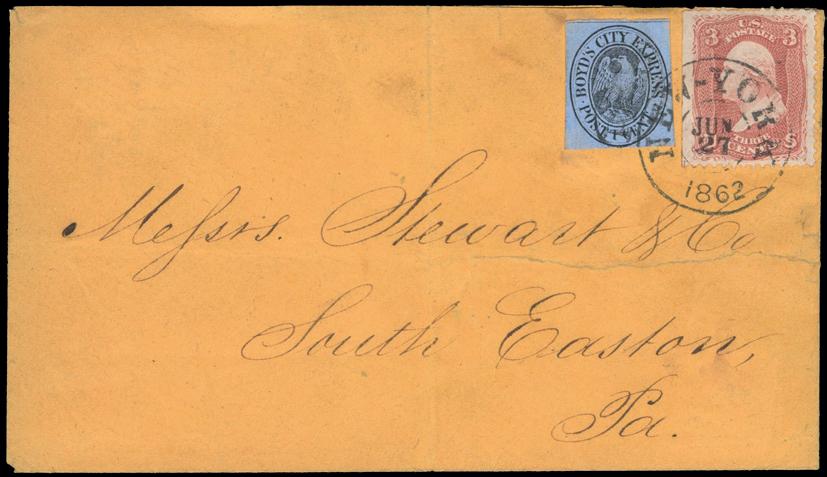 BOYD'S CITY EXPRESS
POST
U.S.
POSTAGE
3 3
THREE
CENTS
U S
NEW-YORK
JUN
27
1862
Messrs. Stewart & Co
South Easton,
Pa.